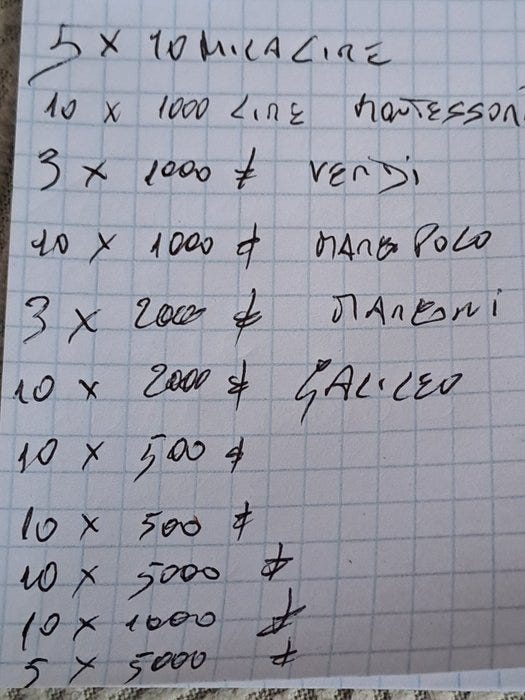 5 x 10 MILA LIRE
10 x 1000 LIRE MONTESSORI
3 x 1000 £ VERDI
10 x 1000 £ MARCO POLO
3 x 2000 £ MARCONI
10 x 2000 £ GALILEO
10 x 500 £
10 x 500 £
10 x 5000 £
10 x 1000 £
5 x 5000 £